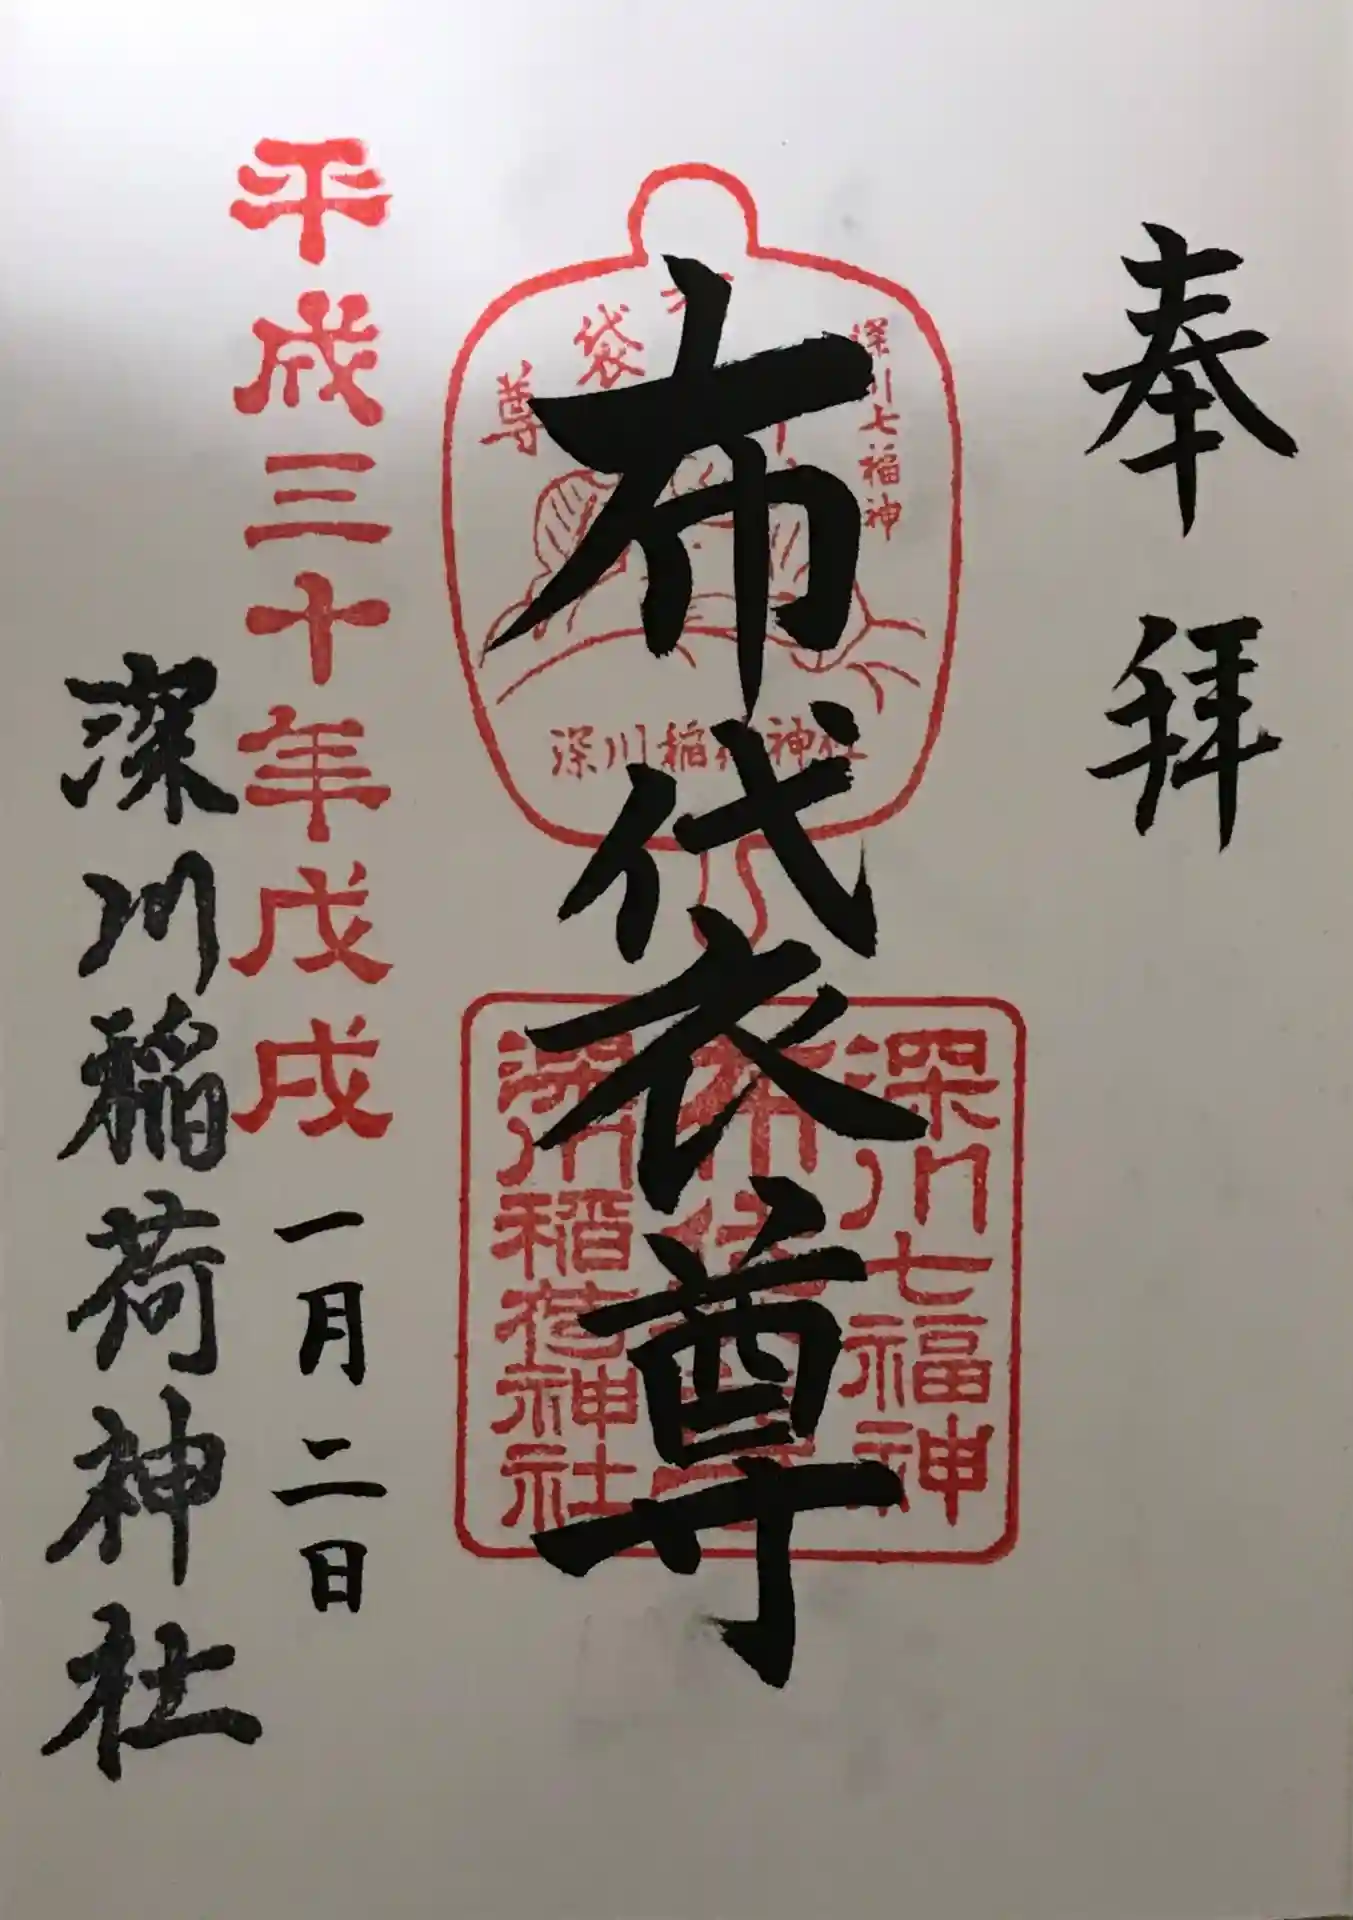 奉拝
深川七福神
布袋尊
深川稲荷神社
布袋尊
深川七福神
布袋尊
深川稲荷神社
平成三十年戊戌
一月二日
深川稲荷神社